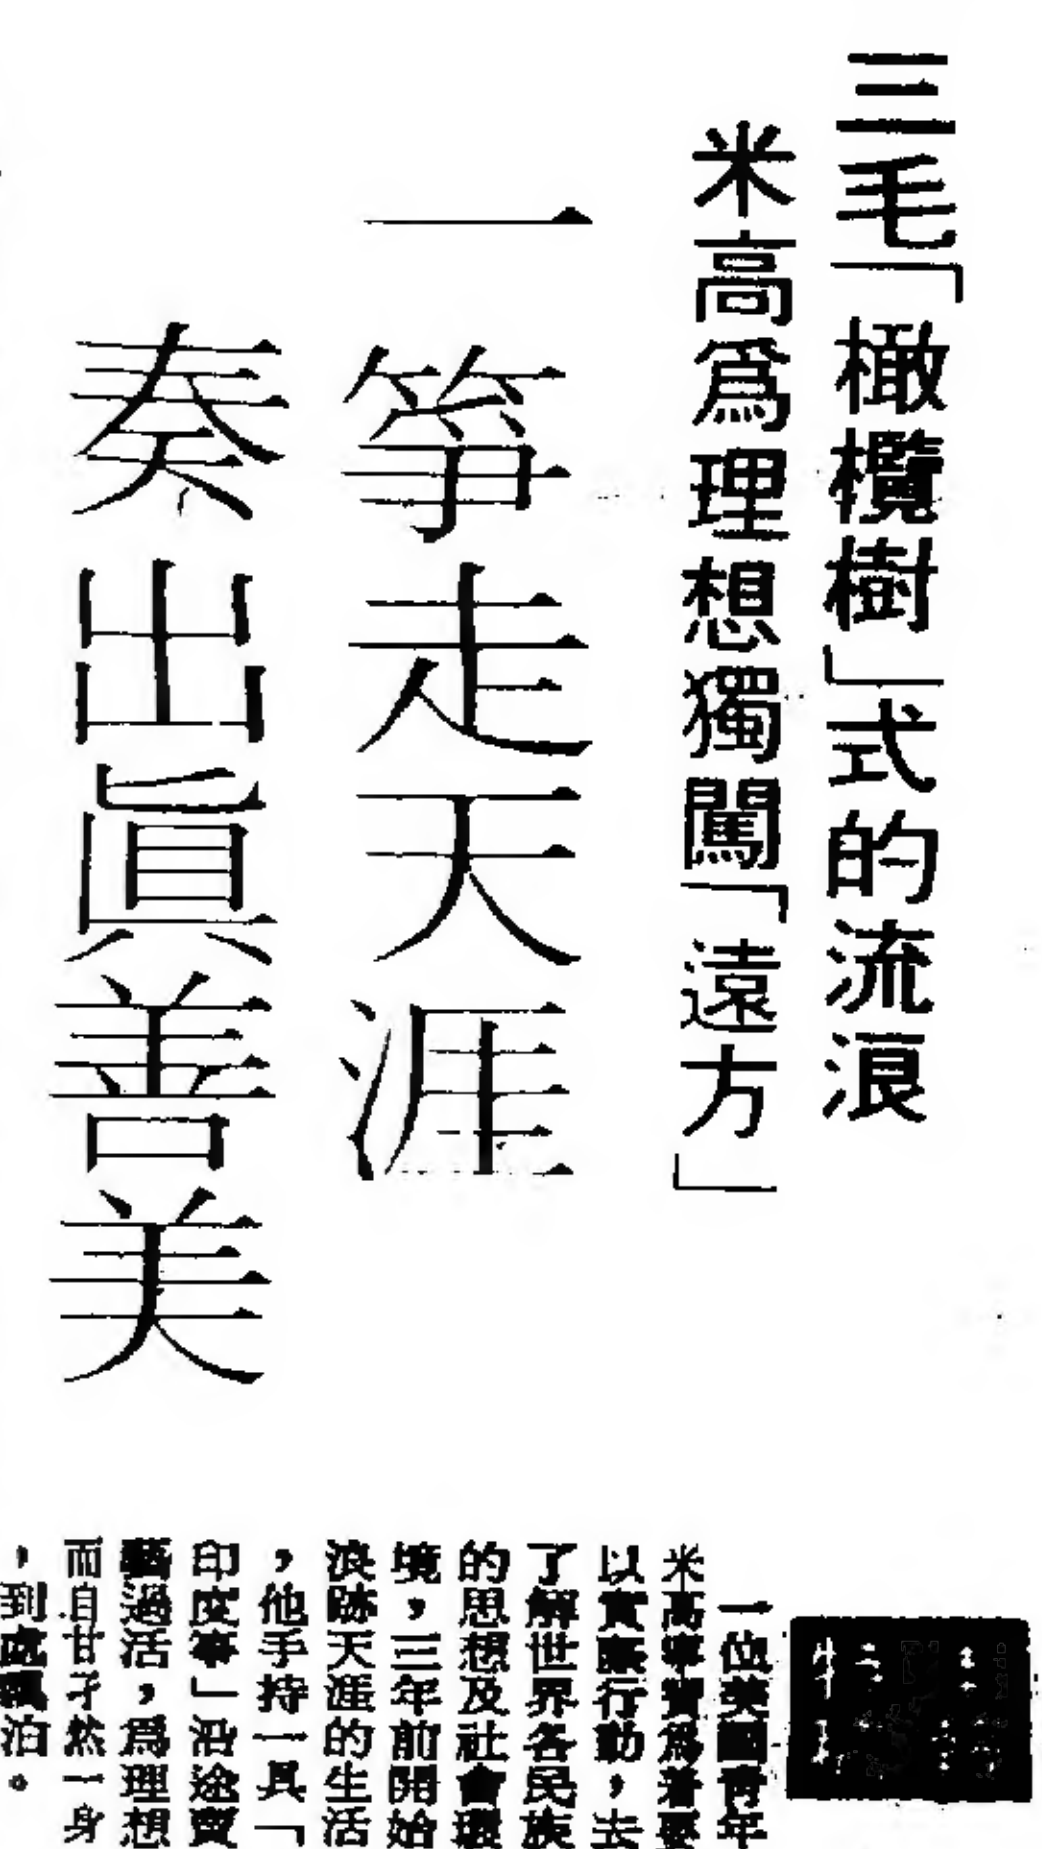 三毛「橄欖樹」式的流浪
米高爲理想獨闖「遠方」
一箏走天涯
奏出眞善美
一位英國青年
米高寧實爲着要
以實際行動，去
了解世界各民族
的思想及社會環
境，三年前開始
浪跡天涯的生活
，他手持一具「
印度箏」沿途賣
藝過活，爲理想
而自甘孑然一身
，到處飄泊。